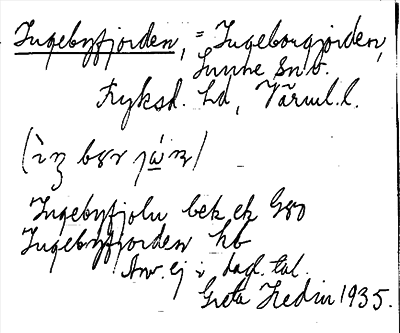 Ingebyfjorden, = Ingeborgjorden,
Lysvik sn.v.
Fryksd. hd, Värml.l.
Ingebyfjolu bek ek G80
Ingebyfjorden kb
Anv. ej i dagl. tal.
Greta Hedin 1935.